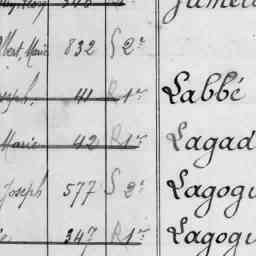 Albert, Marie 832 S 2e
Joseph, 41 R 1er Labbé
Marie 42 R 1er Lagad
Joseph 577 S 2e Lagogu
347 R 1er Lagogu